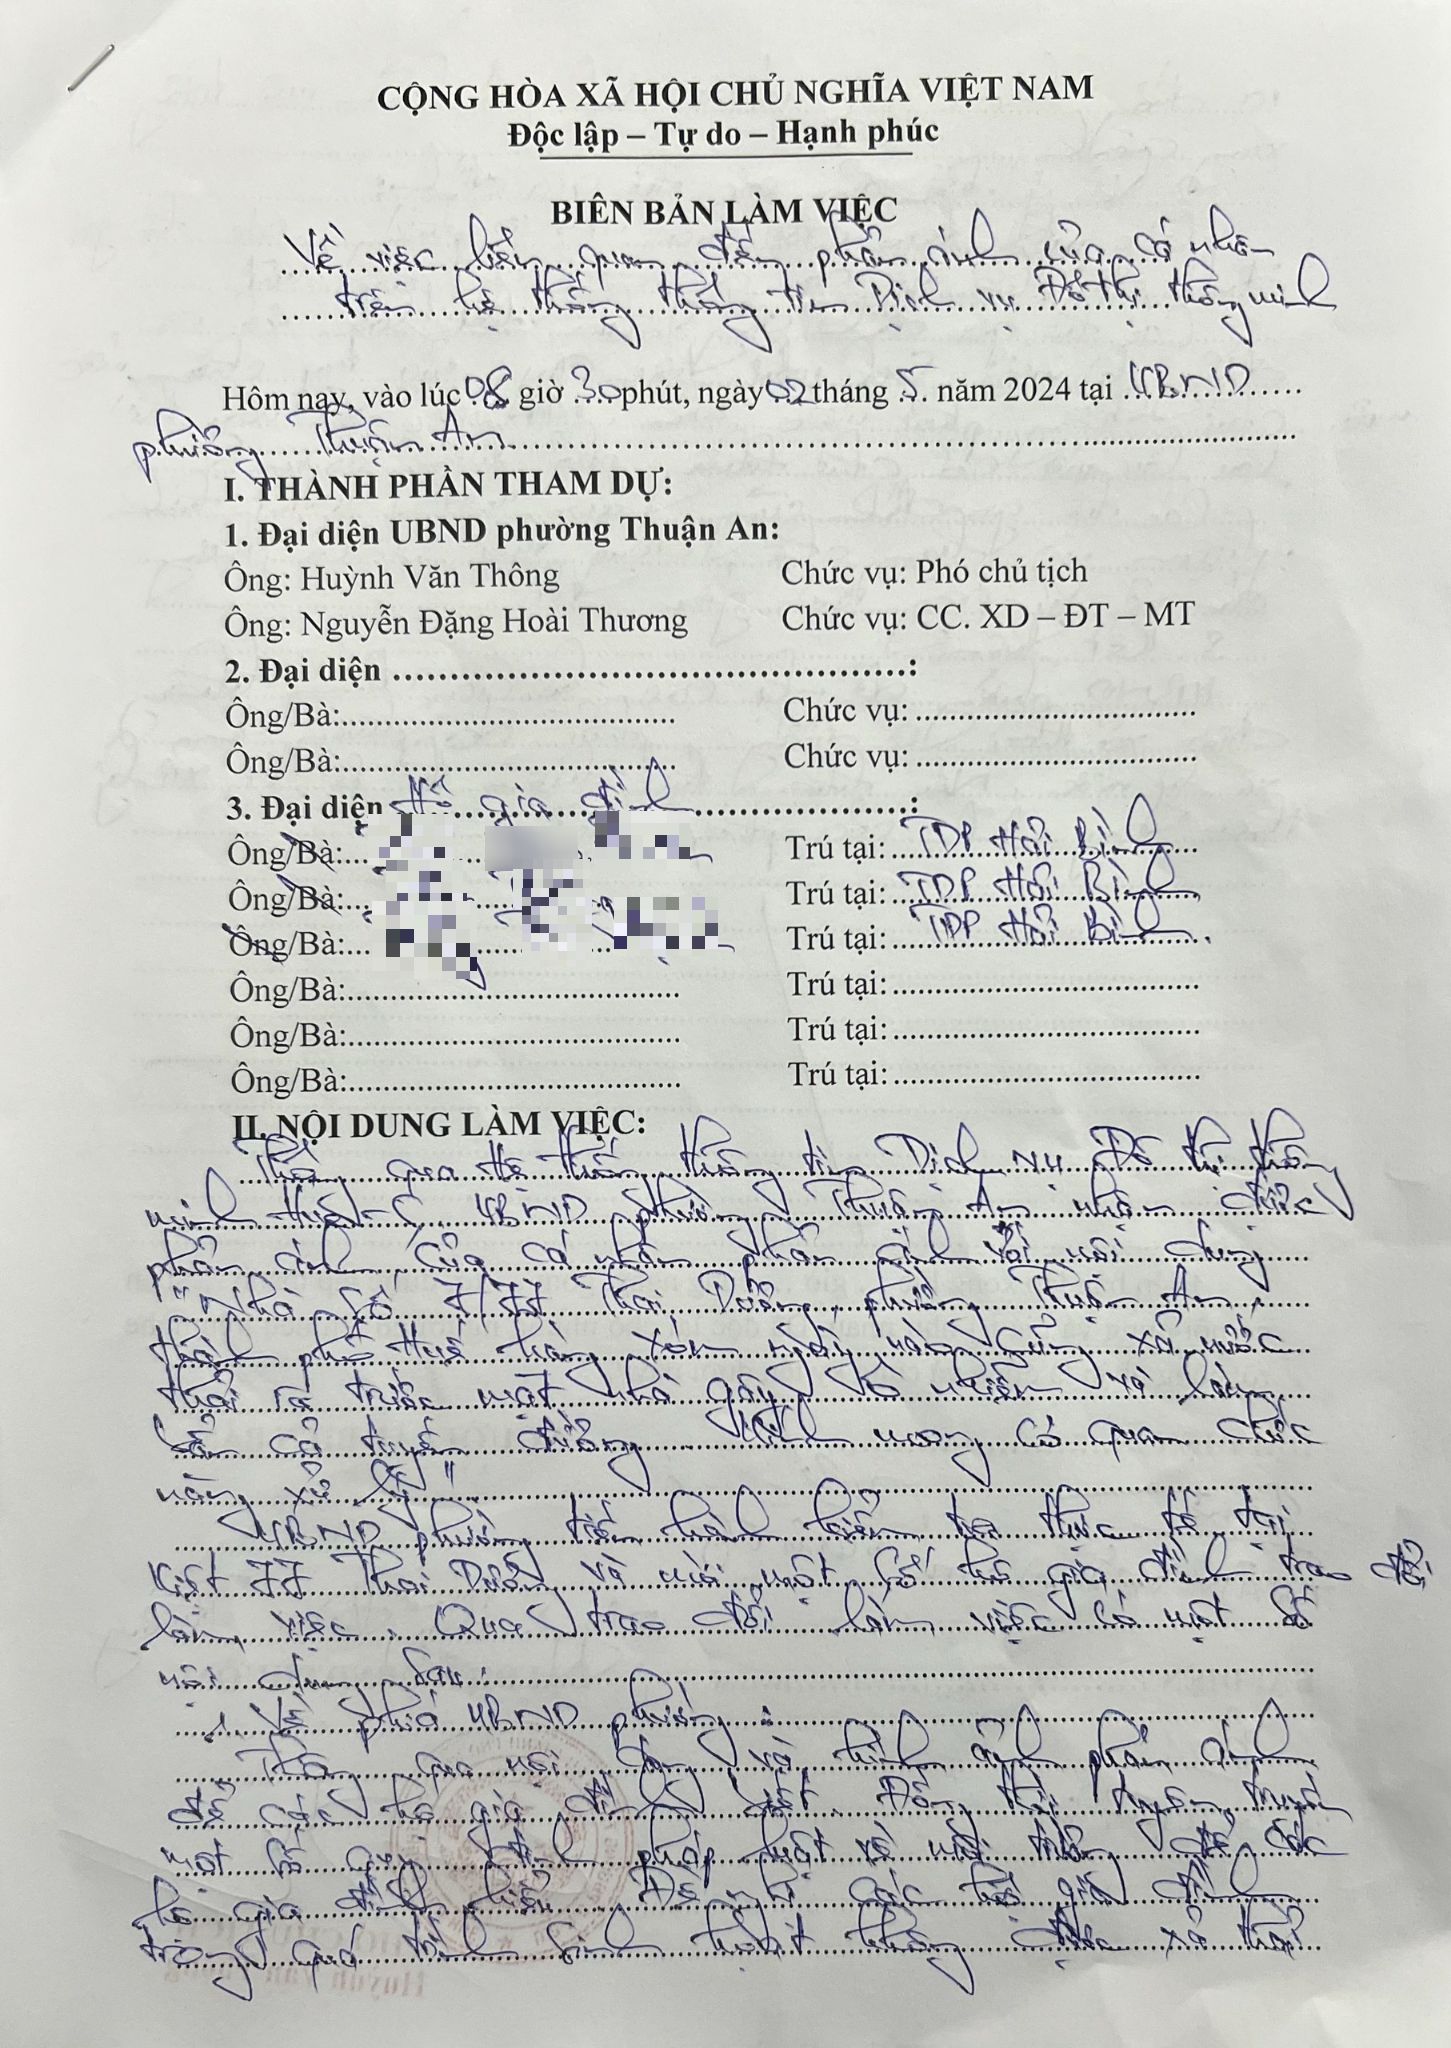 CỘNG HÒA XÃ HỘI CHỦ NGHĨA VIỆT NAM
Độc lập – Tự do – Hạnh phúc
BIÊN BẢN LÀM VIỆC
Về việc liên quan đến phản ánh của cá nhân
trên hệ thống thông tin Dịch vụ Đô thị thông minh
Hôm nay, vào lúc 08 giờ 30 phút, ngày 02 tháng 5 năm 2024 tại UBND
phường Thuận An
I. THÀNH PHẦN THAM DỰ:
1. Đại diện UBND phường Thuận An:
Ông: Huỳnh Văn Thông Chức vụ: Phó chủ tịch
Ông: Nguyễn Đặng Hoài Thương Chức vụ: CC. XD – ĐT – MT
2. Đại diện ..............................................:
Ông/Bà:........................................ Chức vụ: ..................................
Ông/Bà:........................................ Chức vụ: ..................................
3. Đại diện Hộ gia đình:
Ông/Bà:... Trú tại: TDP Hải Bình
Ông/Bà:... Trú tại: TDP Hải Bình
Ông/Bà:... Trú tại: TDP Hải Bình
Ông/Bà:........................................ Trú tại: ....................................
Ông/Bà:........................................ Trú tại: ....................................
Ông/Bà:........................................ Trú tại: ....................................
II. NỘI DUNG LÀM VIỆC:
Thông qua Hệ thống thông tin Dịch vụ Đô thị thông
minh Huế-S, UBND phường Thuận An nhận được
phản ánh của cá nhân phản ánh với nội dung
"Nhà số 7/77 Thai Dương, phường Thuận An,
thành phố Huế hàng xóm ngày nào cũng xả nước
thải ra trước mặt nhà gây ô nhiễm và làm
bẩn cả tuyến đường. Kính mong cơ quan chức
năng xử lý"
UBND phường tiến hành kiểm tra thực tế tại
Kiệt 77 Thai Dương và mời một số hộ gia đình trao đổi
làm việc. Qua trao đổi làm việc có một số
nội dung sau:
1. Về phía UBND phường:
Thông qua nội dung và hình ảnh phản ánh
để các hộ gia đình biết. Đồng thời tuyên truyền
một số quy định pháp luật về môi trường để các
hộ gia đình hiểu. Đề nghị các hộ gia đình
trong quá trình sinh hoạt không được xả thải